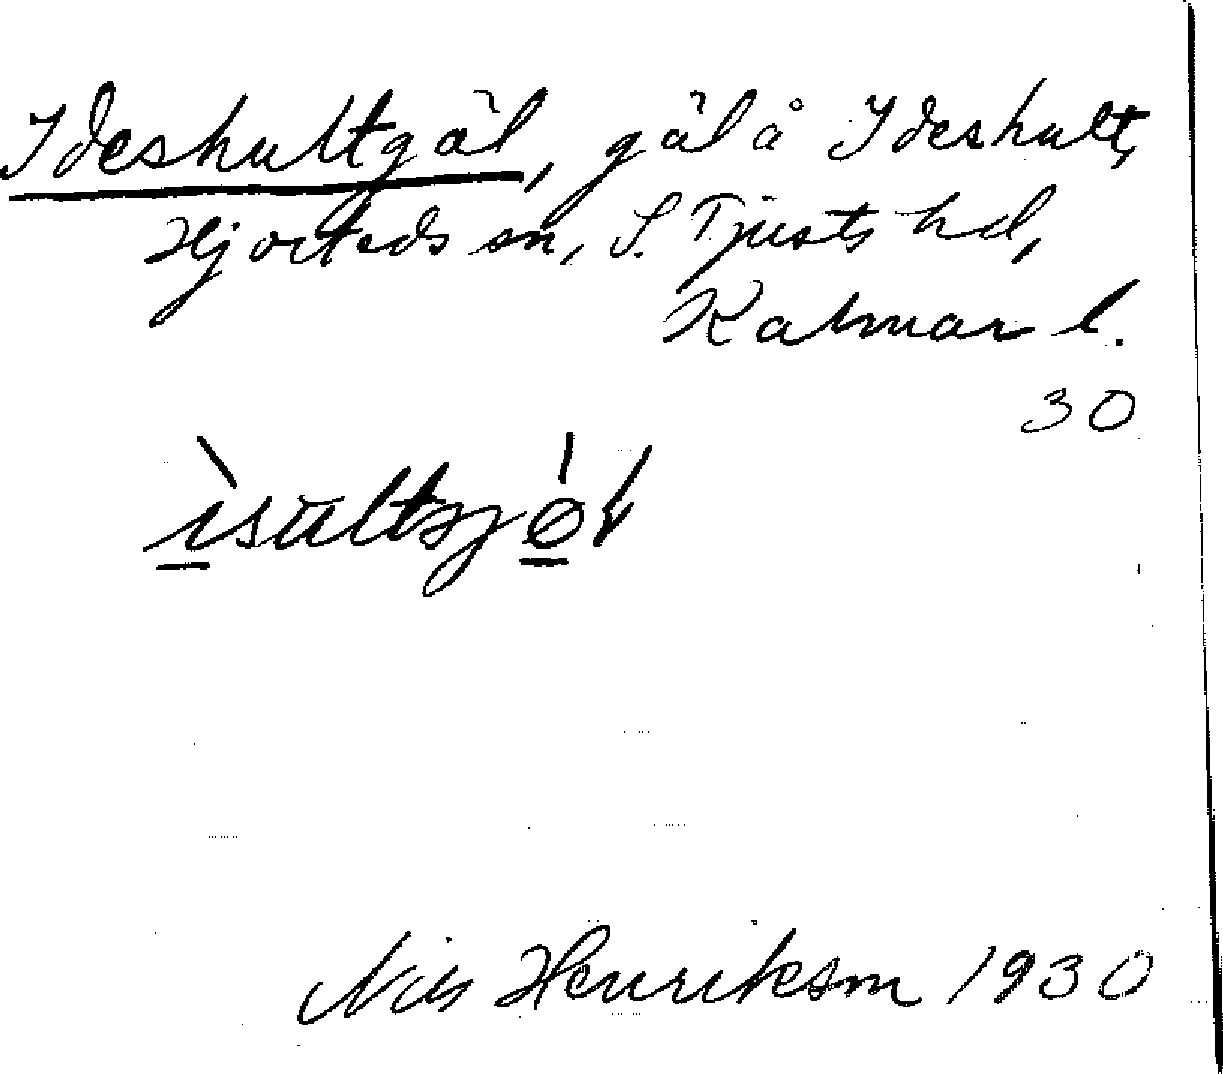 Ideshultgäl, gäl å Ideshult,
Hjorteds sn, S. Tjusts hd,
Kalmar l.
30
Nils Henrikson 1930